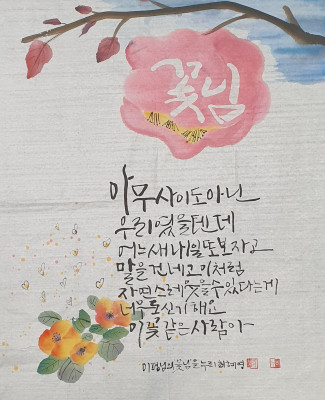 꽃님
아무사이도아닌
우리였을텐데
어느새내일또보자고
말을건네고기처럼
자연스레웃을수있다는게
너무도신기해요
이꽃같은사람아